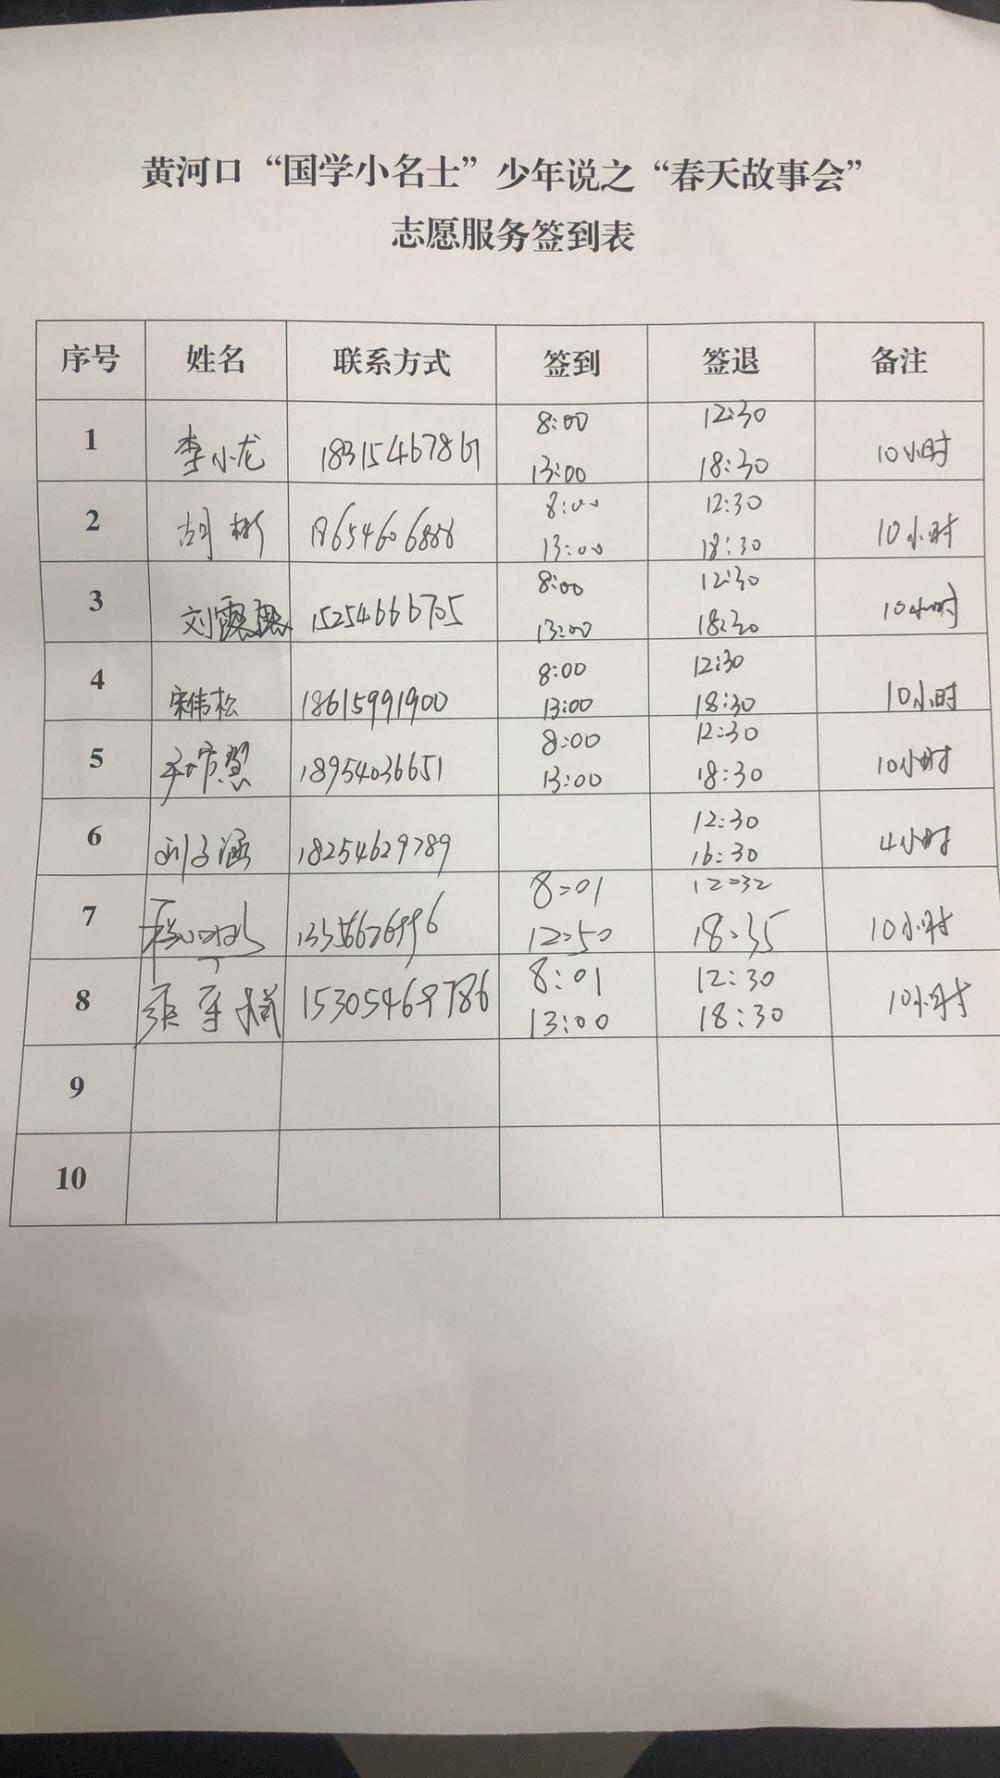 黄河口“国学小名士”少年说之“春天故事会”
志愿服务签到表
序号 姓名 联系方式 签到 签退 备注
8:00 12:30
1 李小龙 18315467861 10小时
13:00 18:30
8:00 12:30
2 胡彬 18654606888 10小时
13:00 18:30
8:00 12:30
3 刘露露 15254666705 10小时
13:00 18:30
8:00 12:30
4 宋伟松 18615991900 10小时
13:00 18:30
8:00 12:30
5 18954036651 10小时
13:00 18:30
12:30
6 刘子涵 18254629789 4小时
16:30
8:01 12:32
7 10小时
12:50 18:35
8:01 12:30
8 15305469786 10小时
13:00 18:30
9
10